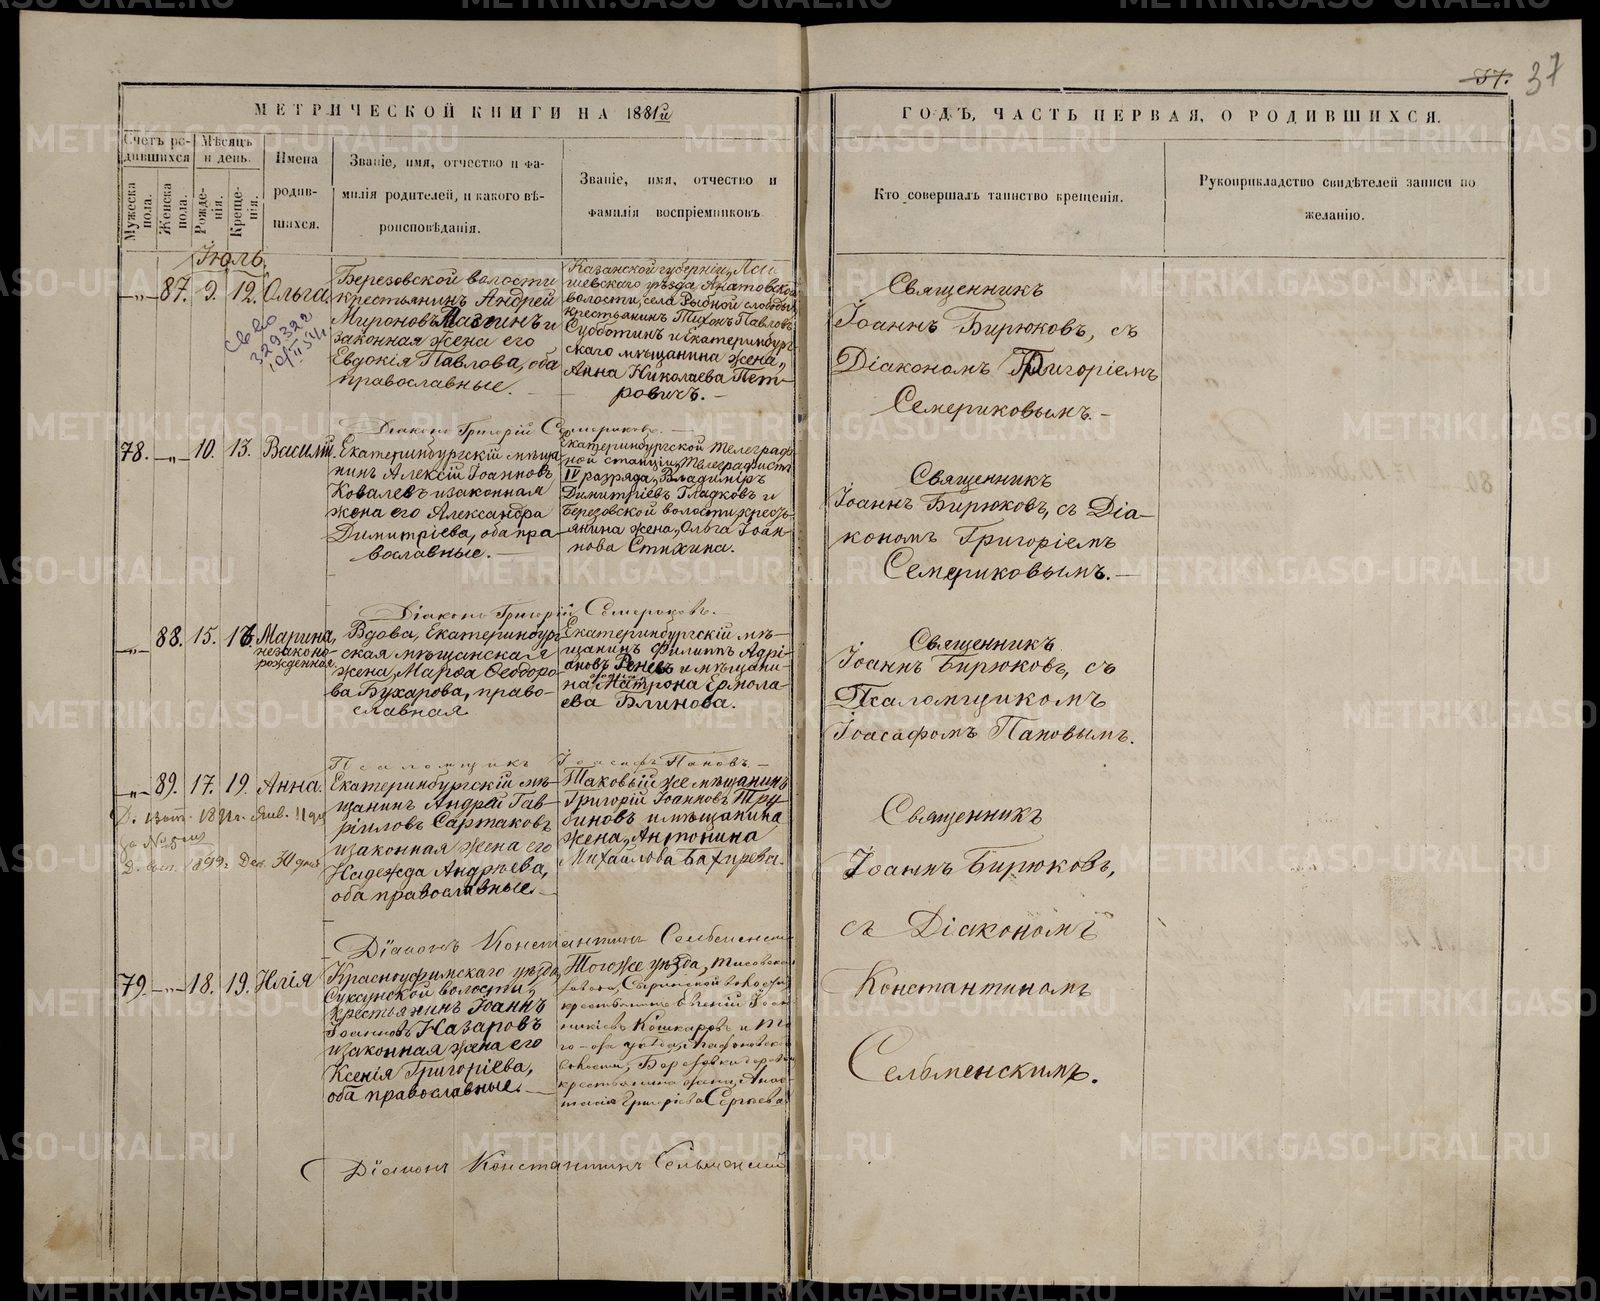 37. 37
МЕТРИЧЕСКОЙ КНИГИ НА 1881й
ГОДЪ, ЧАСТЬ ПЕРВАЯ, О РОДИВШИХСЯ.
Счетъ родившихся
Мужеска пола.
Женска пола.
Мѣсяцъ и день.
Рожденія.
Крещенія.
Имена родившихся.
Званіе, имя, отчество и фамилія родителей, и какого вѣроисповѣданія.
Званіе, имя, отчество и фамилія воспріемниковъ
Кто совершалъ таинство крещенія.
Рукоприкладство свидѣтелей записи по желанію.
Іюль.
87. 9. 12. Ольга
Березовской волости
крестьянинъ Андрей
Мироновъ и
законная жена его
Евдокія Павлова, оба
православные.
Казанской губерніи,
шевскаго уѣзда,
волости, села Рыбной слободы
крестьянинъ Тихонъ Павловъ
Субботинъ и Екатеринбург-
скаго мѣщанина жена,
Анна Николаева Пет-
ровичъ.
Священникъ
Іоаннъ Бирюковъ, съ
Діакономъ Григоріемъ
Семериковымъ.
Діаконъ Григорій Семериковъ.
78. 10. 13. Василій.
Екатеринбургскій мѣща-
нинъ Алексій Іоанновъ
Ковалевъ и законная
жена его Александра
Димитріева, оба пра-
вославные.
Екатеринбургской телеграф-
ной станціи, Телеграфистъ
IV разряда, Владиміръ
Димитріевъ Гладковъ и
Березовской волости кресть-
янина жена, Ольга Іоан-
нова Стихина.
Священникъ
Іоаннъ Бирюковъ, съ Діа-
кономъ Григоріемъ
Семериковымъ.
Діаконъ Григорій Семериковъ.
88. 15. 16. Марина,
незаконно-
рожденная
Вдова, Екатеринбург-
ская мѣщанская
жена, Марѳа Ѳеодоро-
ва Бухарова, право-
славная
Екатеринбургскій мѣ-
щанинъ Филиппъ Адрі-
ановъ и мѣщани-
на Матрона Ермола-
ева Блинова.
Священникъ
Іоаннъ Бирюковъ, съ
Псаломщикомъ
Іоасафомъ Пановымъ.
Псаломщикъ Іоасафъ Пановъ.
89. 17. 19. Анна.
Екатеринбургскій мѣ-
щанинъ Андрей Гав-
ріиловъ Сартаковъ
и законная жена его
Надежда Андреева,
оба православные.
Таковый же мѣщанинъ
Григорій Іоанновъ Тру-
биновъ и мѣщанина
жена, Антонина
Михайлова Бахирева.
Священникъ
Іоаннъ Бирюковъ,
съ Діакономъ
Константиномъ
Сельменскимъ.
Діаконъ Константинъ Сельменскій
79. 18. 19. Илія
Красноуфимскаго уѣзда,
Суксунской волости,
крестьянинъ Іоаннъ
Іоанновъ Назаровъ
и законная жена его
Ксенія Григоріева,
оба православные.
Тогоже уѣзда,
завода, Сыринской волости
крестьянинъ Евгеній
Кошкаровъ и
го-же уѣзда,
волости,
крестьянина жена, Анас-
тасія Григоріева Сергѣева
Діаконъ Константинъ Сельменскій
METRIKI.GASO-URAL.RU